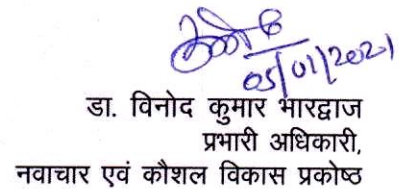 05/01/2021
डा. विनोद कुमार भारद्वाज
प्रभारी अधिकारी,
नवाचार एवं कौशल विकास प्रकोष्ठ